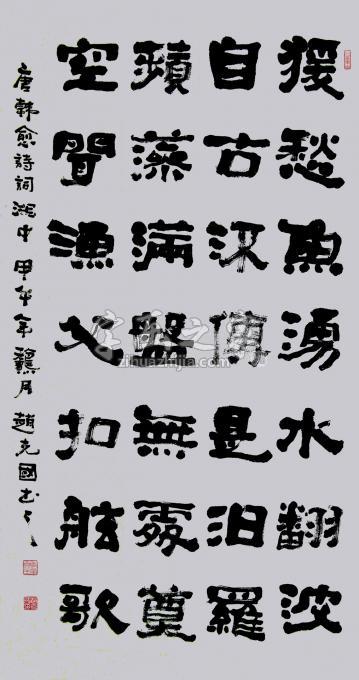 猨愁魚湧水翻波
自古流傳是汨羅
蘋藻滿盤無處奠
空聞漁父扣舷歌
唐韓愈詩詞湖中 甲午年龝月 趙克國書
字画之家
zihuazhijia.com